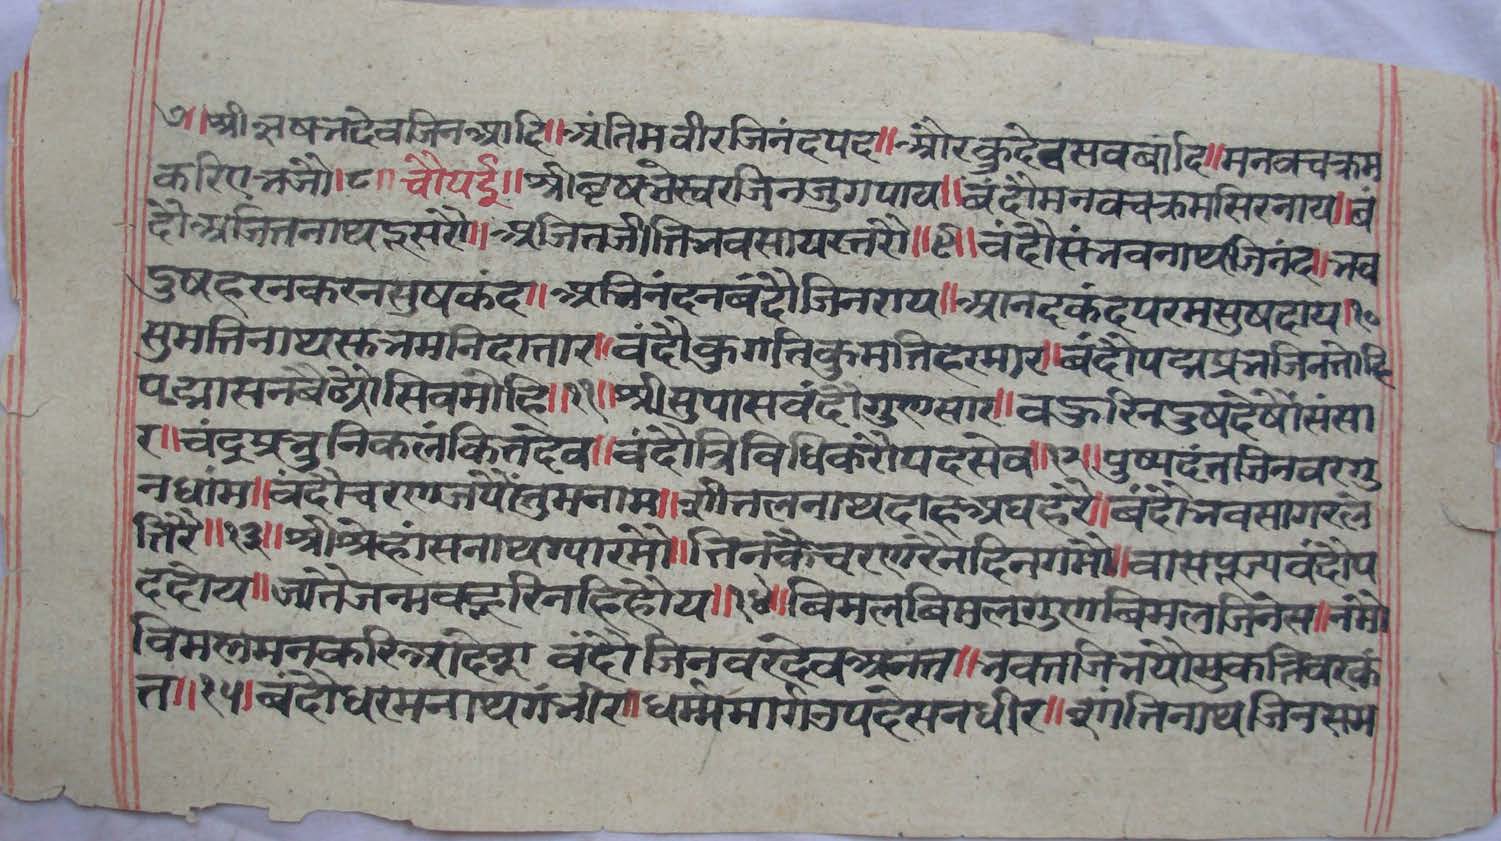 ७॥ श्रीऋषभदेवजिनआदि॥ अंतिमवीरजिनंदपद॥ औरकुदेवसवबादि॥ मनवचक्रम
करिएभजौ।८॥ चौपई॥ श्रीवृषभेस्वरजिनजुगपाय॥ बंदौमनवचक्रमसिरनाय॥ बं
दौअजितनाथइसरौ॥ अजितजीतिभवसायरतरौ॥९॥ वंदौसंभवनाथजिनंद॥ भव
दुषहरनकरनसुषकंद॥ अभिनंदनबंदौजिनराय॥ आनदकंदपरमसुषदाय।१०
सुमतिनाथसभमनिदातार॥ वंदौकुगतिकुमतिहरमार॥ बंदौपद्मप्रभजिनतोहि
पद्मासनबैठ्यौसिवमोहि॥११॥ श्रीसुपासवंदौगुणसार॥ वहुरिनदुषदेषौंसंसा
र॥ चंद्रप्रभुनिकलंकितदेव॥ वंदौत्रिविधिकरौपदसेव॥१२॥ पुष्पदंतजिनवरगु
नधांम॥ वंदौचरणजपैंतुमनाम॥ शीतलनाथदाहअघहरै॥ बंदौभवसागरलं
तिरै॥१३॥ श्रीश्रेहांसनाथग्यारमौ॥ तिनकैचरणरैनदिनगमौ॥ वासपूज्यवंदौप
ददोय॥ जातेजन्मवहुरिनहिहोय॥१४॥ बिमलबिमलगुणबिमलजिनेस॥ नंमौ
विमलमनकरिआदेश वंदौजिनवरदेवअनंत॥ भक्तजिभयौमुकतिवरकं
त॥१५। बंदौधरमनाथगंभीर॥ धर्ममार्गउपदेसनधीर॥ शांतिनाथजिनसम